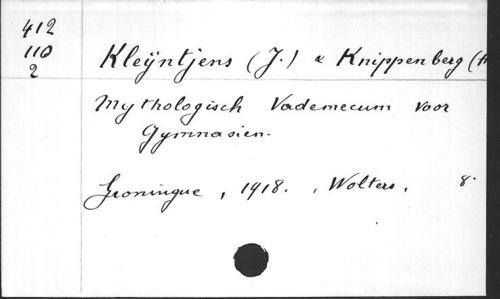 412
110
2
Kleÿntjens (J.) & Knippenberg (H
Mythologisch Vademecum voor
Gymnasien.
Groningue, 1918. , Wolters, 8.